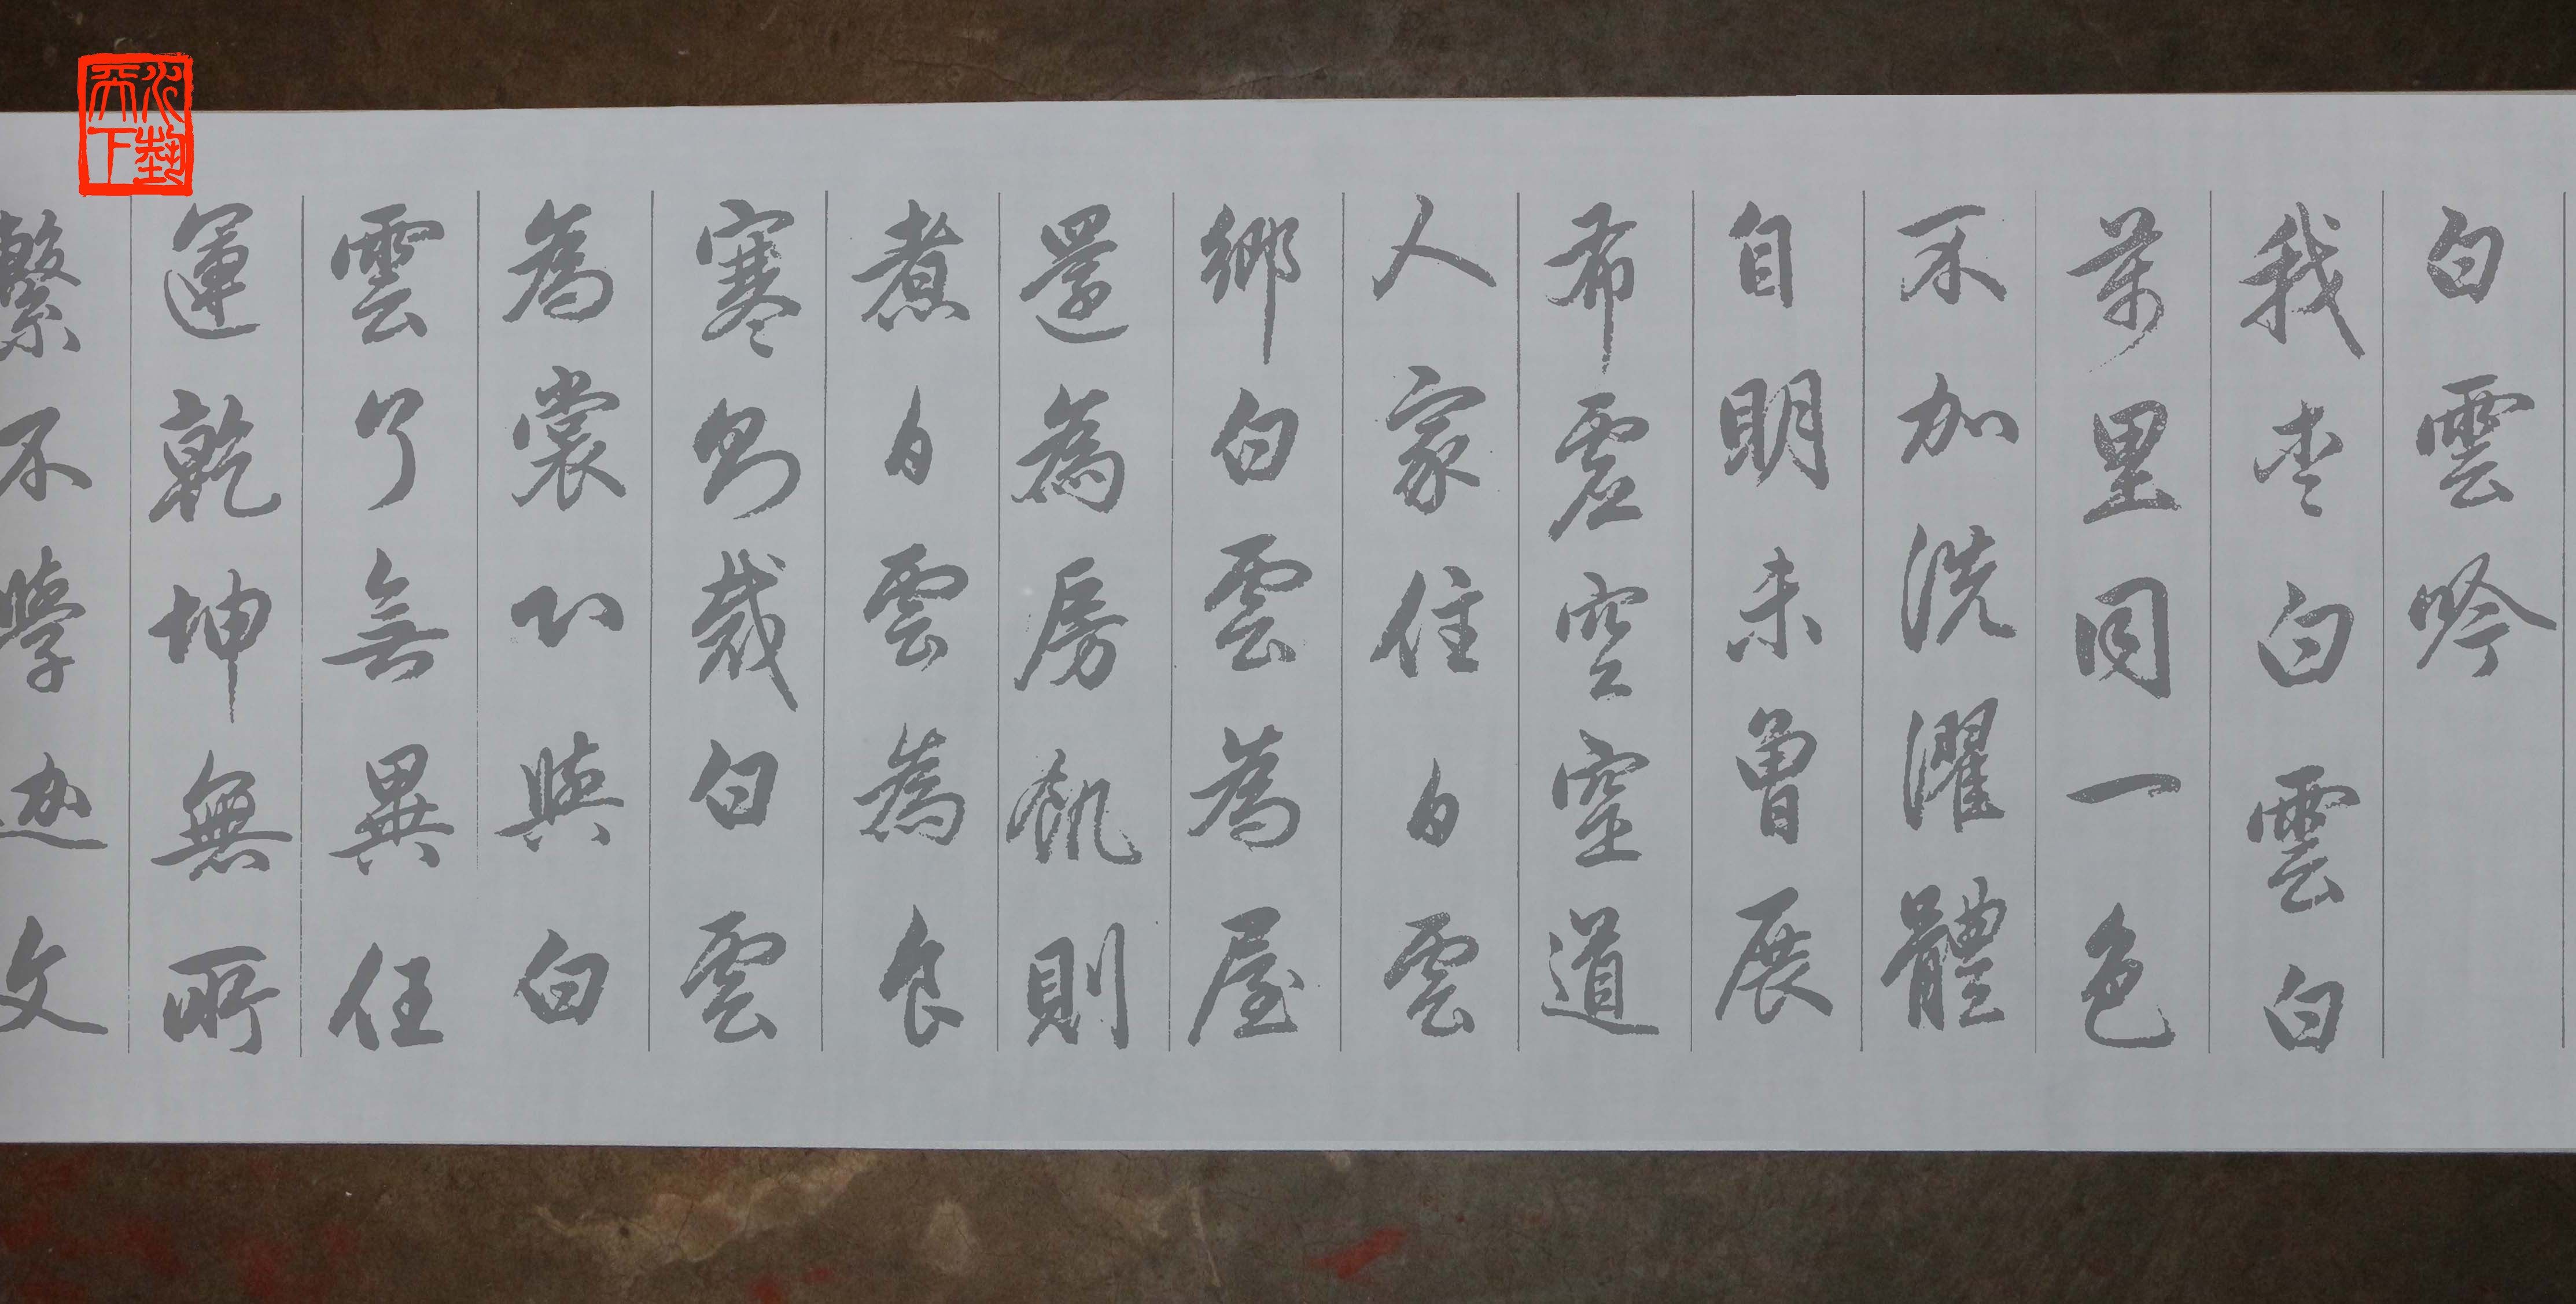 白雲吟
我白雲白
萬里同一色
不加洗濯體
自明未曾展
希虛空空道
人家住白雲
鄉白雲為屋
還為房飢則
煮白雲為食
寒則裁白雲
為裳心與白
雲了無異任
運乾坤無所
繫不學迦文
天下